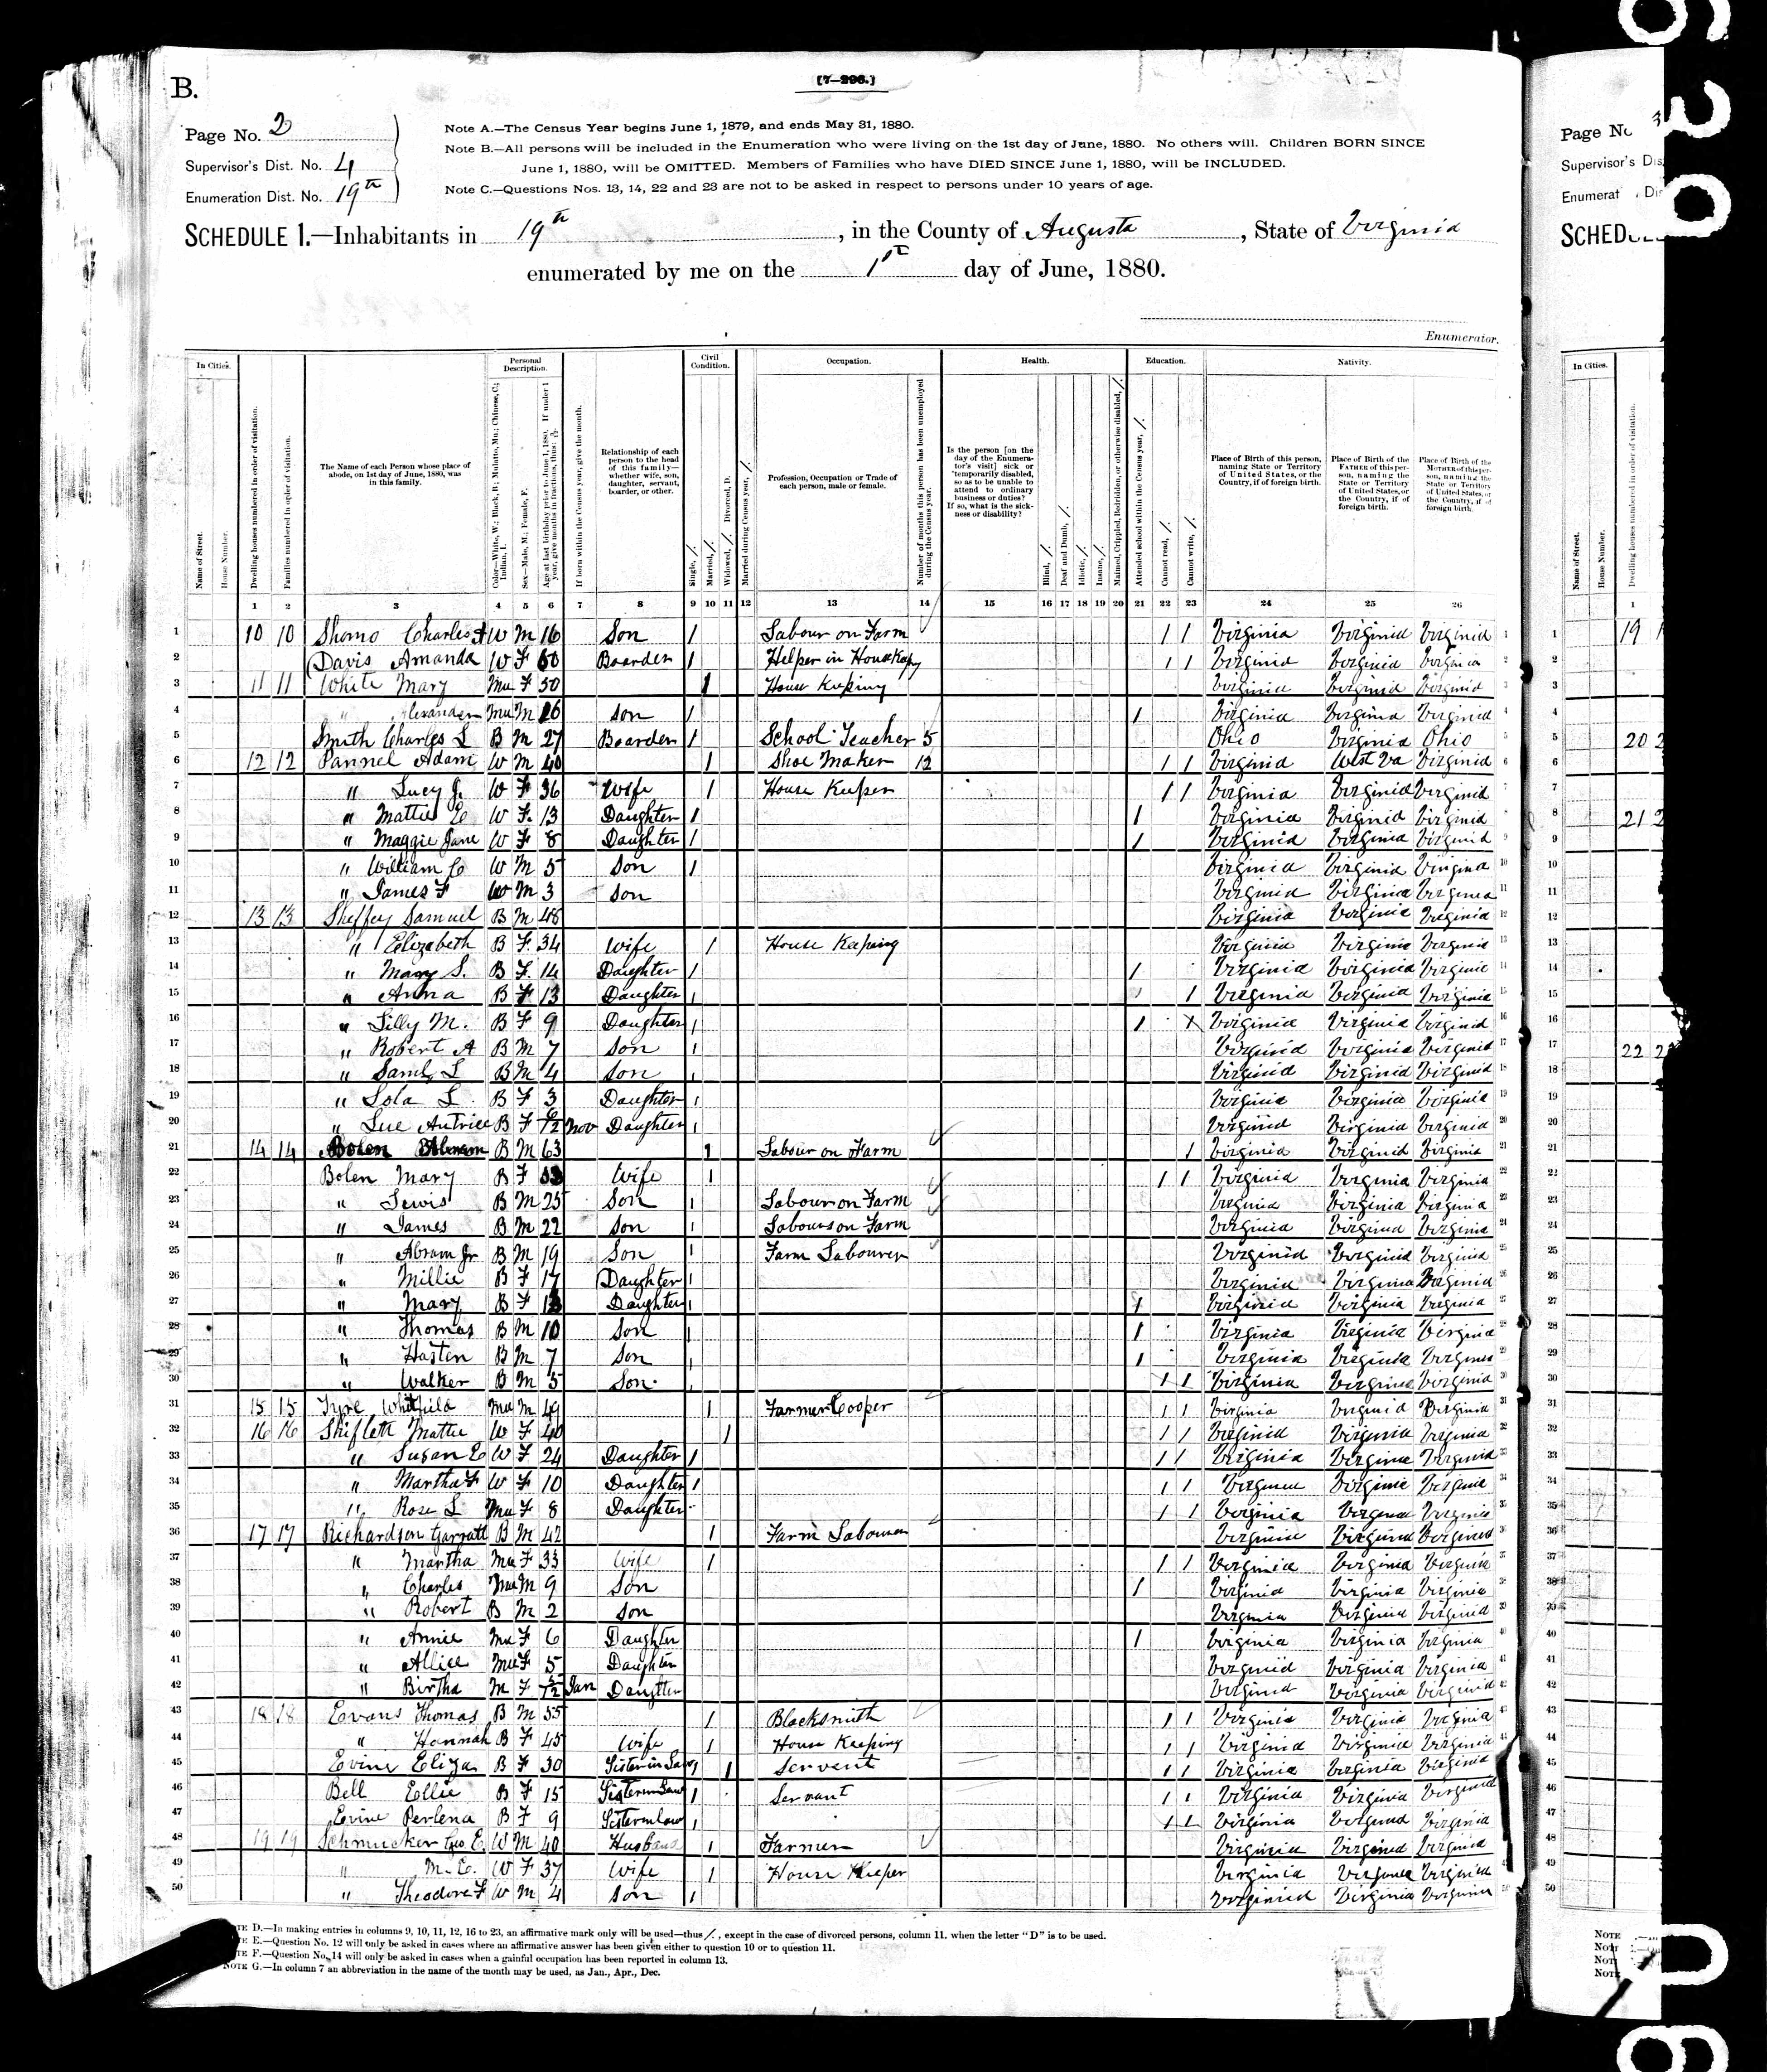 B.
[7—296.]
Page No. 2
Supervisor's Dist. No. 4
Enumeration Dist. No. 19th
Note A.—The Census Year begins June 1, 1879, and ends May 31, 1880.
Note B.—All persons will be included in the Enumeration who were living on the 1st day of June, 1880. No others will. Children BORN SINCE
June 1, 1880, will be OMITTED. Members of Families who have DIED SINCE June 1, 1880, will be INCLUDED.
Note C.—Questions Nos. 13, 14, 22 and 23 are not to be asked in respect to persons under 10 years of age.
SCHEDULE 1.—Inhabitants in 19th, in the County of Augusta, State of Virginia
enumerated by me on the 1st day of June, 1880.
Enumerator.
In Cities. Personal Description. Civil Condition. Occupation. Health. Education. Nativity.
Name of Street.
House Number.
Dwelling houses numbered in order of visitation.
Families numbered in order of visitation.
The Name of each Person whose place of abode, on 1st day of June, 1880, was in this family.
Color—White, W.; Black, B.; Mulatto, Mu.; Chinese, C.; Indian, I.
Sex—Male, M.; Female, F.
Age at last birthday prior to June 1, 1880. If under 1 year, give months in fractions, thus: 3/12.
If born within the Census year, give the month.
Relationship of each person to the head of this family—whether wife, son, daughter, servant, boarder, or other.
Single, /.
Married, /.
Widowed, /. Divorced, D.
Married during Census year, /.
Profession, Occupation or Trade of each person, male or female.
Number of months this person has been unemployed during the Census year.
Is the person [on the day of the Enumerator's visit] sick or temporarily disabled, so as to be unable to attend to ordinary business or duties? If so, what is the sickness or disability?
Blind, /.
Deaf and Dumb, /.
Idiotic, /.
Insane, /.
Maimed, Crippled, Bedridden, or otherwise disabled, /.
Attended school within the Census year, /.
Cannot read, /.
Cannot write, /.
Place of Birth of this person, naming State or Territory of United States, or the Country, if of foreign birth.
Place of Birth of the FATHER of this person, naming the State or Territory of United States, or the Country, if of foreign birth.
Place of Birth of the MOTHER of this person, naming the State or Territory of United States, or the Country, if of foreign birth.
1 2 3 4 5 6 7 8 9 10 11 12 13 14 15 16 17 18 19 20 21 22 23 24 25 26
1 10 10 Shomo Charles W M 16 Son / Labour on Farm / / Virginia Virginia Virginia
2 Davis Amanda W F 60 Boarder / Helper in / / Virginia Virginia Virginia
3 11 11 White Mary Mu F 50 / House Keeping Virginia Virginia Virginia
4 " Alexander Mu M 16 son / / Virginia Virginia Virginia
5 Smith Charles L B M 27 Boarder / School Teacher 5 Ohio Virginia Ohio
6 12 12 Pannel Adam W M 40 / Shoe Maker 12 / / Virginia West Va Virginia
7 " Lucy J. W F 36 Wife / House Keeper / / Virginia Virginia Virginia
8 " Mattie E W F. 13 Daughter / / Virginia Virginia Virginia
9 " Maggie Jane W F 8 Daughter / / Virginia Virginia Virginia
10 " William W M 5 Son / Virginia Virginia Virginia
11 " James F W M 3 son Virginia Virginia Virginia
12 13 13 Sheffey Samuel B M 48 Virginia Virginia Virginia
13 " Elizabeth B F. 34 Wife / House Keeping Virginia Virginia Virginia
14 " Mary S. B F. 14 Daughter / / Virginia Virginia Virginia
15 " Anna B F 13 Daughter / / / Virginia Virginia Virginia
16 " Lilly M. B F 9 Daughter / / X Virginia Virginia Virginia
17 " Robert A B M 7 Son / Virginia Virginia Virginia
18 " Saml L B M 4 Son / Virginia Virginia Virginia
19 " Lola L B F 3 Daughter / Virginia Virginia Virginia
20 " Lue B F 6/12 Nov Daughter / Virginia Virginia Virginia
21 14 14 Bolen Abram B M 63 / Labour on Farm / Virginia Virginia Virginia
22 Bolen Mary B F Wife / / / Virginia Virginia Virginia
23 " Lewis B M 25 Son / Labour on Farm Virginia Virginia Virginia
24 " James B M 22 Son / Labour on Farm Virginia Virginia Virginia
25 " Abram Jr B M 19 Son / Farm Labourer Virginia Virginia Virginia
26 " Millie B F 17 Daughter / Virginia Virginia Virginia
27 " Mary B F 13 Daughter / / Virginia Virginia Virginia
28 " Thomas B M 10 Son / / Virginia Virginia Virginia
29 " Hasten B M 7 Son / / Virginia Virginia Virginia
30 " Walker B M 5 Son. / / / Virginia Virginia Virginia
31 15 15 Tyre Whitfield Mu M 49 / Farmer Cooper / / Virginia Virginia Virginia
32 16 16 Shiflett Mattie W F 40 / / / Virginia Virginia Virginia
33 " Susan E W F 24 Daughter / / / Virginia Virginia Virginia
34 " Martha F W F 10 Daughter / / / Virginia Virginia Virginia
35 " Rose L Mu F 8 Daughter / / Virginia Virginia Virginia
36 17 17 Richardson Garratt B M 42 / Farm Labourer Virginia Virginia Virginia
37 " Martha Mu F 33 Wife / / / Virginia Virginia Virginia
38 " Charles Mu M 9 Son / Virginia Virginia Virginia
39 " Robert B M 2 Son Virginia Virginia Virginia
40 " Annie Mu F 6 Daughter / Virginia Virginia Virginia
41 " Allice Mu F 5 Daughter Virginia Virginia Virginia
42 " Birtha M F 5/12 Jan Daughter Virginia Virginia Virginia
43 18 18 Evans Thomas B M 55 / Blacksmith / / Virginia Virginia Virginia
44 " Hannah B F 45 Wife / House Keeping / / Virginia Virginia Virginia
45 Evine Eliza B F 30 Sister in Law / Servent / / Virginia Virginia Virginia
46 Bell Ellie B F 15 Sister in Law / Servant / / Virginia Virginia Virginia
47 Evine Perlena B F 9 Sister in law / / / Virginia Virginia Virginia
48 19 19 Schmucker Geo. E. W M 40 Husband / Farmer Virginia Virginia Virginia
49 " M. E. W F 37 Wife / House Keeper Virginia Virginia Virginia
50 " Theodore F W M 4 Son / Virginia Virginia Virginia
NOTE D.—In making entries in columns 9, 10, 11, 12, 16 to 23, an affirmative mark only will be used—thus /, except in the case of divorced persons, column 11, when the letter "D" is to be used.
NOTE E.—Question No. 12 will only be asked in cases where an affirmative answer has been given either to question 10 or to question 11.
NOTE F.—Question No. 14 will only be asked in cases when a gainful occupation has been reported in column 13.
NOTE G.—In column 7 an abbreviation in the name of the month may be used, as Jan., Apr., Dec.
Page No. 3
Supervisor's Dis
Enumerat Di
SCHED
In Cities.
Name of Street.
House Number.
Dwelling houses numbered in order of visitation.
1
19
20
21
22
NOTE